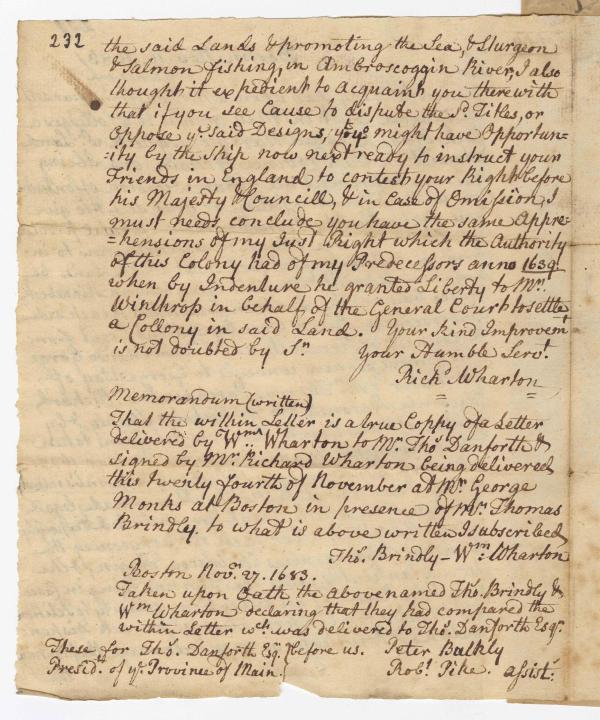 232
the said Lands & promoting the Sea, & Sturgeon
& Salmon fishing, in Ambroscoggin River, I also
thought it expedient to acquaint you therewith
that if you see Cause to dispute the sd. Titles, or
Oppose ye. said Designs, you might have Opportun=
=ity by the Ship now next ready to instruct your
Friends in England to contest your Right before
his Majesty & Councill, & in Case of Omission, I
must needs conclude you have the same Appre=
=hensions of my Just Right which the Authority
of this Colony had of my Predecessors anno 1639.
when by Indenture he granted Liberty to Mr.
Winthrop in behalf of the General Court to settle
a Collony in said Land. Your kind Improvemt
is not doubted by Sr. Your Humble Servt.
Richd. Wharton
Memorandum (written)
That the within Letter is a true Coppy of a Letter
delivered by Wm. Wharton to Mr. Tho. Danforth &
signed by Mr. Richard Wharton being delivered
this twenty fourth of November at Mr. George
Monks at Boston in presence of Mr. Thomas
Brindly. to what is above written I subscribed
Tho. Brindly – Wm. Wharton
Boston Novr. 27. 1683.
Taken upon Oath the above named Tho. Brindly &
Wm Wharton declaring that they had compared the
within Letter wch. was delivered to Tho. Danforth Esqr.
These for Tho. Danforth Esqr. } before us. Peter Bulkly
Presidt. of ye. Province of Main. Robt. Pike. assist: